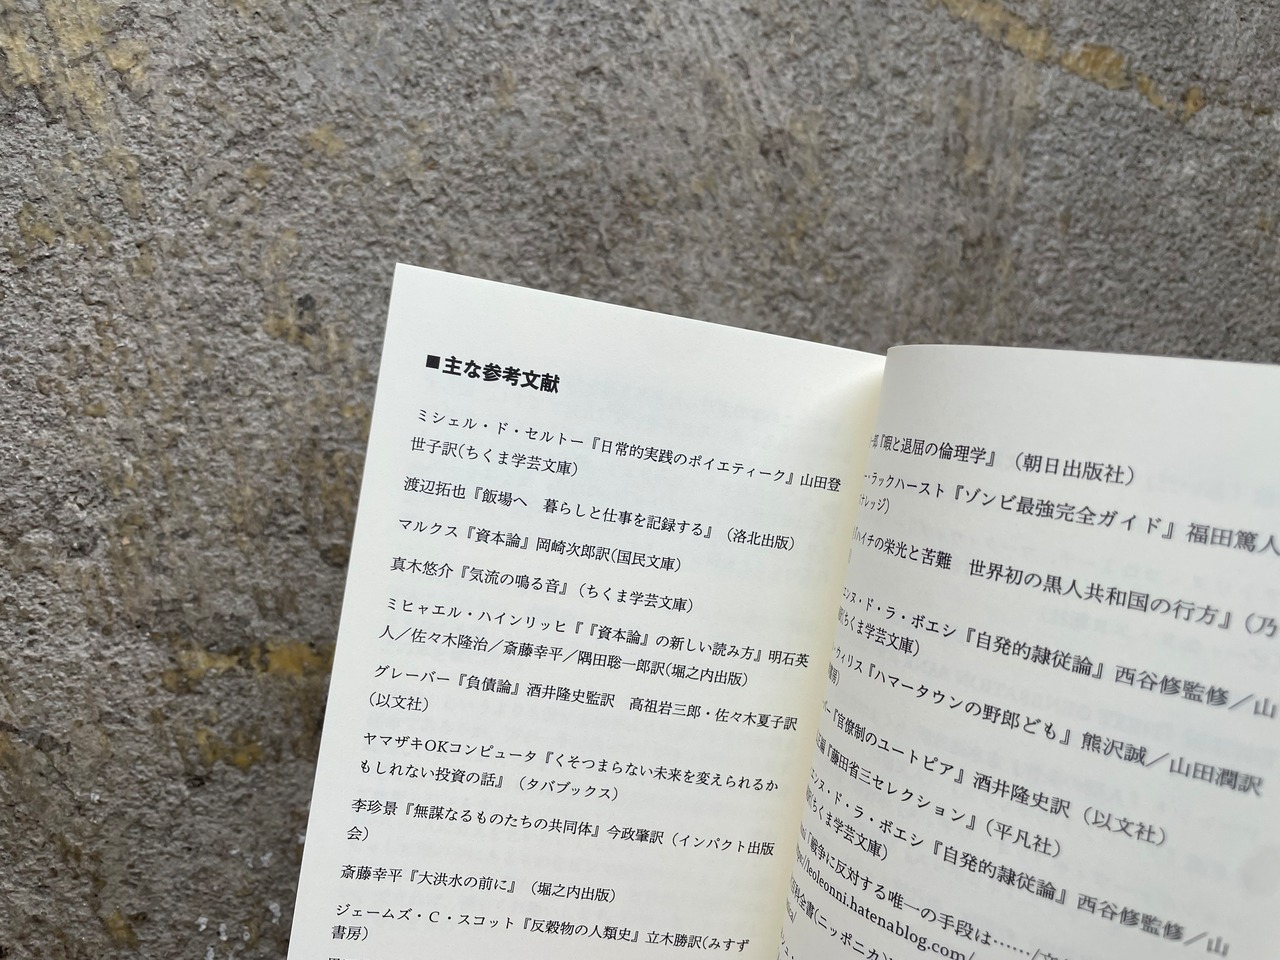 ■主な参考文献
ミシェル・ド・セルトー『日常的実践のポイエティーク』山田登
世子訳(ちくま学芸文庫)
渡辺拓也『飯場へ　暮らしと仕事を記録する』（洛北出版）
マルクス『資本論』岡崎次郎訳(国民文庫)
真木悠介『気流の鳴る音』（ちくま学芸文庫）
ミヒャエル・ハインリッヒ『『資本論』の新しい読み方』明石英
人／佐々木隆治／斎藤幸平／隅田聡一郎訳(堀之内出版)
グレーバー『負債論』酒井隆史監訳　高祖岩三郎・佐々木夏子訳
（以文社）
ヤマザキOKコンピュータ『くそつまらない未来を変えられるか
もしれない投資の話』（タバブックス）
李珍景『無謀なるものたちの共同体』今政肇訳（インパクト出版
会）
斎藤幸平『大洪水の前に』（堀之内出版）
ジェームズ・C・スコット『反穀物の人類史』立木勝訳(みすず
書房)
『暇と退屈の倫理学』（朝日出版社）
ー・ラックハースト『ゾンビ最強完全ガイド』福田篤人
ナレッジ）
『ハイチの栄光と苦難　世界初の黒人共和国の行方』（乃
エンヌ・ド・ラ・ボエシ『自発的隷従論』西谷修監修／山
訳(ちくま学芸文庫)
・ウィリス『ハマータウンの野郎ども』熊沢誠／山田潤訳
書房)
バー『官僚制のユートピア』酒井隆史訳（以文社）
『藤田省三セレクション』（平凡社）
エンヌ・ド・ラ・ボエシ『自発的隷従論』西谷修監修／山
訳(ちくま学芸文庫)
『戦争に反対する唯一の手段は……/
leoleonni.hatenablog.com/
百科全書(ニッポニカ)